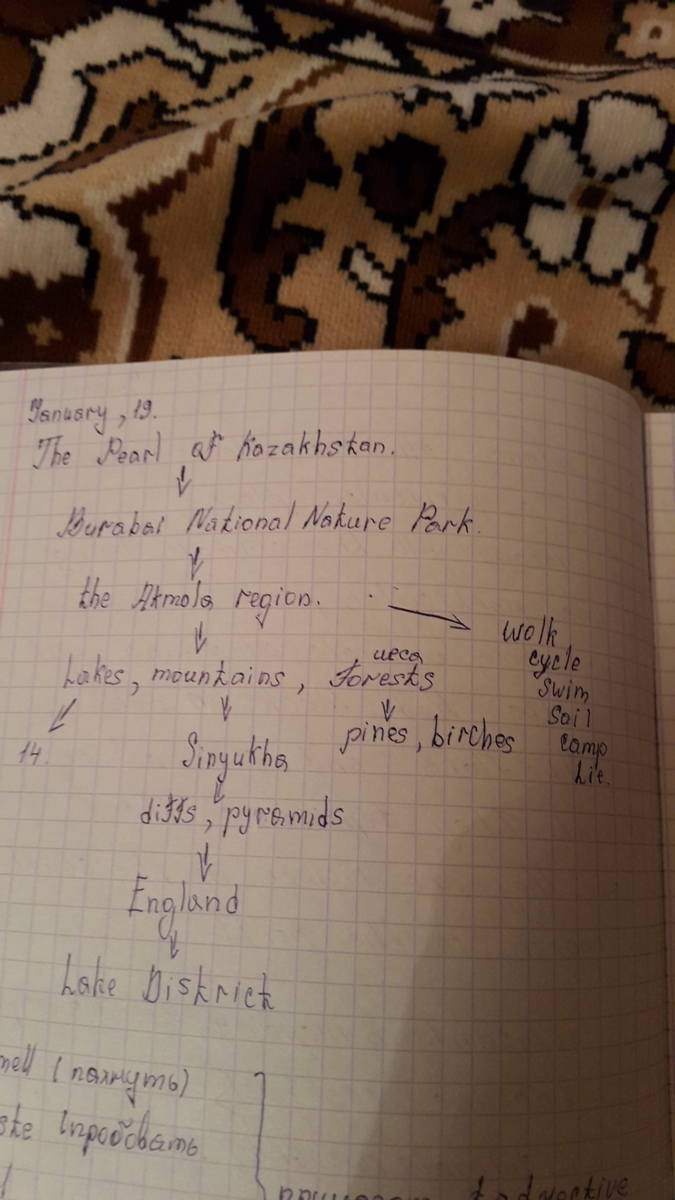 January, 19.
The Pearl of Kazakhstan.
Burabai National Nature Park.
the Akmola region.
walk
cycle
swim
sail
camp
lie.
леса
Lakes, mountains, forests
14.
Sinyukha
pines, birches
cliffs, pyramids
England
Lake Districkt
mell (пахнуть)
ste (пробовать